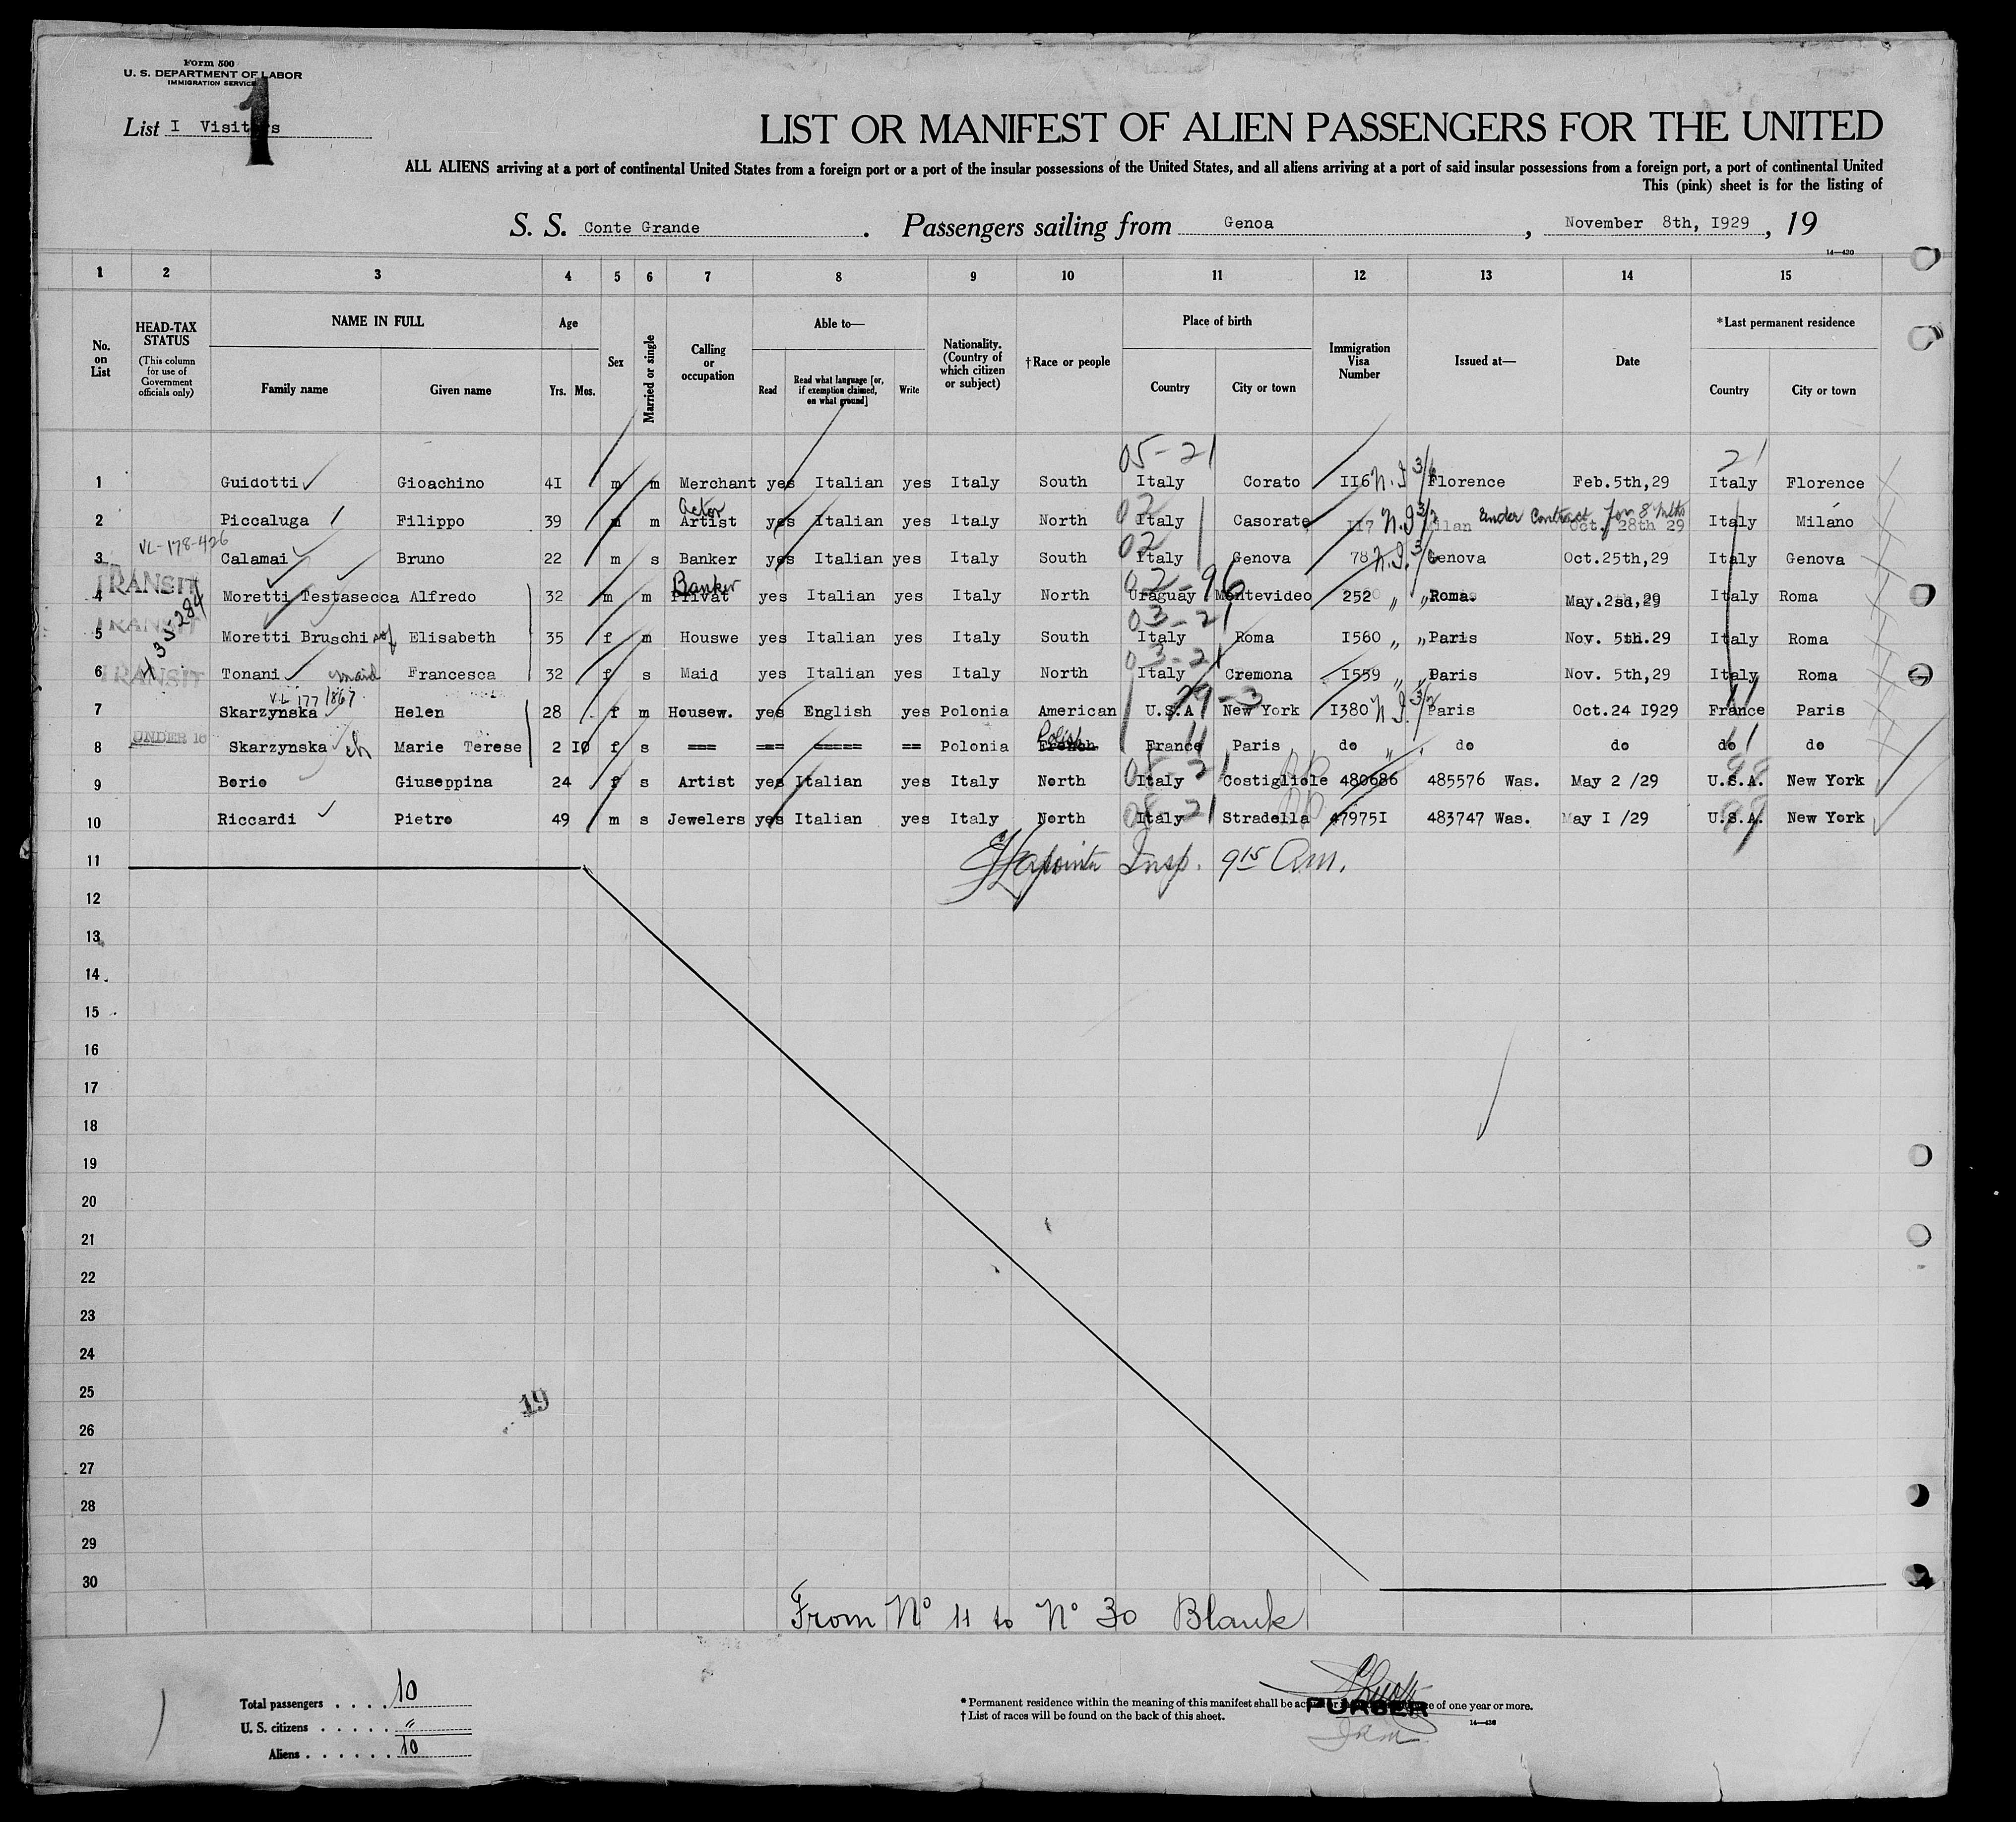 Form 500
U. S. DEPARTMENT OF LABOR
IMMIGRATION SERVICE
1
List I Visitors
LIST OR MANIFEST OF ALIEN PASSENGERS FOR THE UNITED
ALL ALIENS arriving at a port of continental United States from a foreign port or a port of the insular possessions of the United States, and all aliens arriving at a port of said insular possessions from a foreign port, a port of continental United
This (pink) sheet is for the listing of
S. S. Conte Grande . Passengers sailing from Genoa , November 8th, I929 , 19
14—430
1 2 3 4 5 6 7 8 9 10 11 12 13 14 15
No. on List
HEAD-TAX STATUS (This column for use of Government officials only)
NAME IN FULL Family name Given name
Age Yrs. Mos.
Sex
Married or single
Calling or occupation
Able to— Read Read what language [or, if exemption claimed, on what ground] Write
Nationality. (Country of which citizen or subject)
†Race or people
Place of birth Country City or town
Immigration Visa Number
Issued at—
Date
*Last permanent residence Country City or town
05-21 21
1 Guidotti Gioachino 4I m m Merchant yes Italian yes Italy South Italy Corato II6 N.I 3/6 Florence Feb.5th,29 Italy Florence
Actor 02 Under Contract for 8 mths
2 Piccaluga Filippo 39 m m Artist yes Italian yes Italy North Italy Casorate II7 N.I 3/2 Milan Oct. 28th 29 Italy Miláno
VL-178-426 02
3 Calamai Bruno 22 m s Banker yes Italian yes Italy South Italy Genova 78 N.I. 3/6 Genova Oct.25th,29 Italy Genova
TRANSIT Banker 02-96
4 Moretti Testasecca Alfredo 32 m m Privat yes Italian yes Italy North Uraguay Montevideo 252 „ „ Roma. May.2sd,29 Italy Roma
TRANSIT 435284 03-21
5 Moretti Bruschi wf Elisabeth 35 f m Houswe yes Italian yes Italy South Italy Roma I560 „ „ Paris Nov. 5th.29 Italy Roma
TRANSIT 03-21
6 Tonani maid Francesca 32 f s Maid yes Italian yes Italy North Italy Cremona I559 „ „ Paris Nov. 5th,29 Italy Roma
VL 177/867 29-3 11
7 Skarzynska Helen 28 f m Housew. yes English yes Polonia American U.S.A New York I380 N I. 3/2 Paris Oct.24 1929 France Paris
UNDER 16 Polish 11 11
8 Skarzynska ch Marie Terese 2 I0 f s === === ===== == Polonia French France Paris do „ do do do do
05-21 RP 98
9 Borio Giuseppina 24 f s Artist yes Italian yes Italy North Italy Costigliole 480686 485576 Was. May 2 /29 U.S.A. New York
08-21 RP 98
10 Riccardi Pietro 49 m s Jewelers yes Italian yes Italy North Italy Stradella 47975I 483747 Was. May I /29 U.S.A. New York
11 Insp. 9 15 Am.
12
13
14
15
16
17
18
19
20
21
22
23
24
25
19
26
27
28
29
30
From Nº 11 to Nº 30 Blank
Total passengers . . . . 10
U. S. citizens . . . . . "
Aliens . . . . . . 10
* Permanent residence within the meaning of this manifest shall be actual or of one year or more.
† List of races will be found on the back of this sheet.
PURSER
14—430